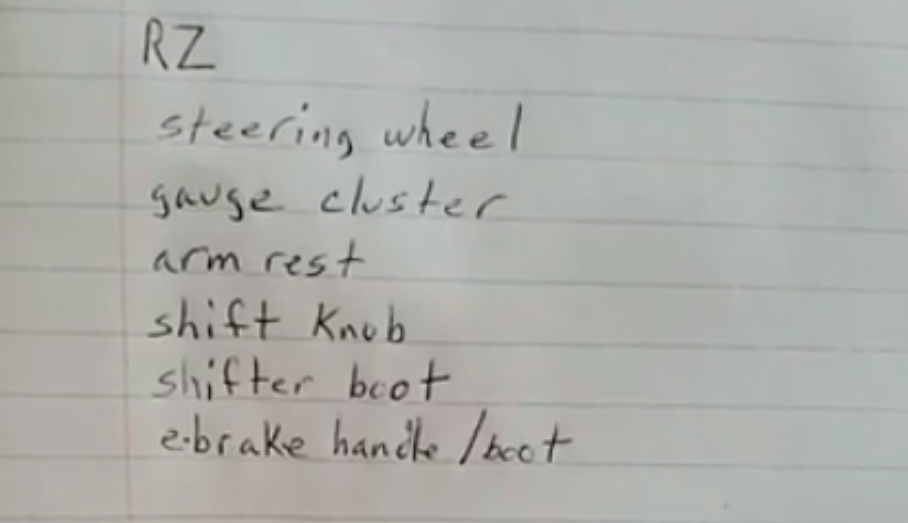 RZ
steering wheel
gauge cluster
arm rest
shift Knob
shifter boot
e-brake handle /boot